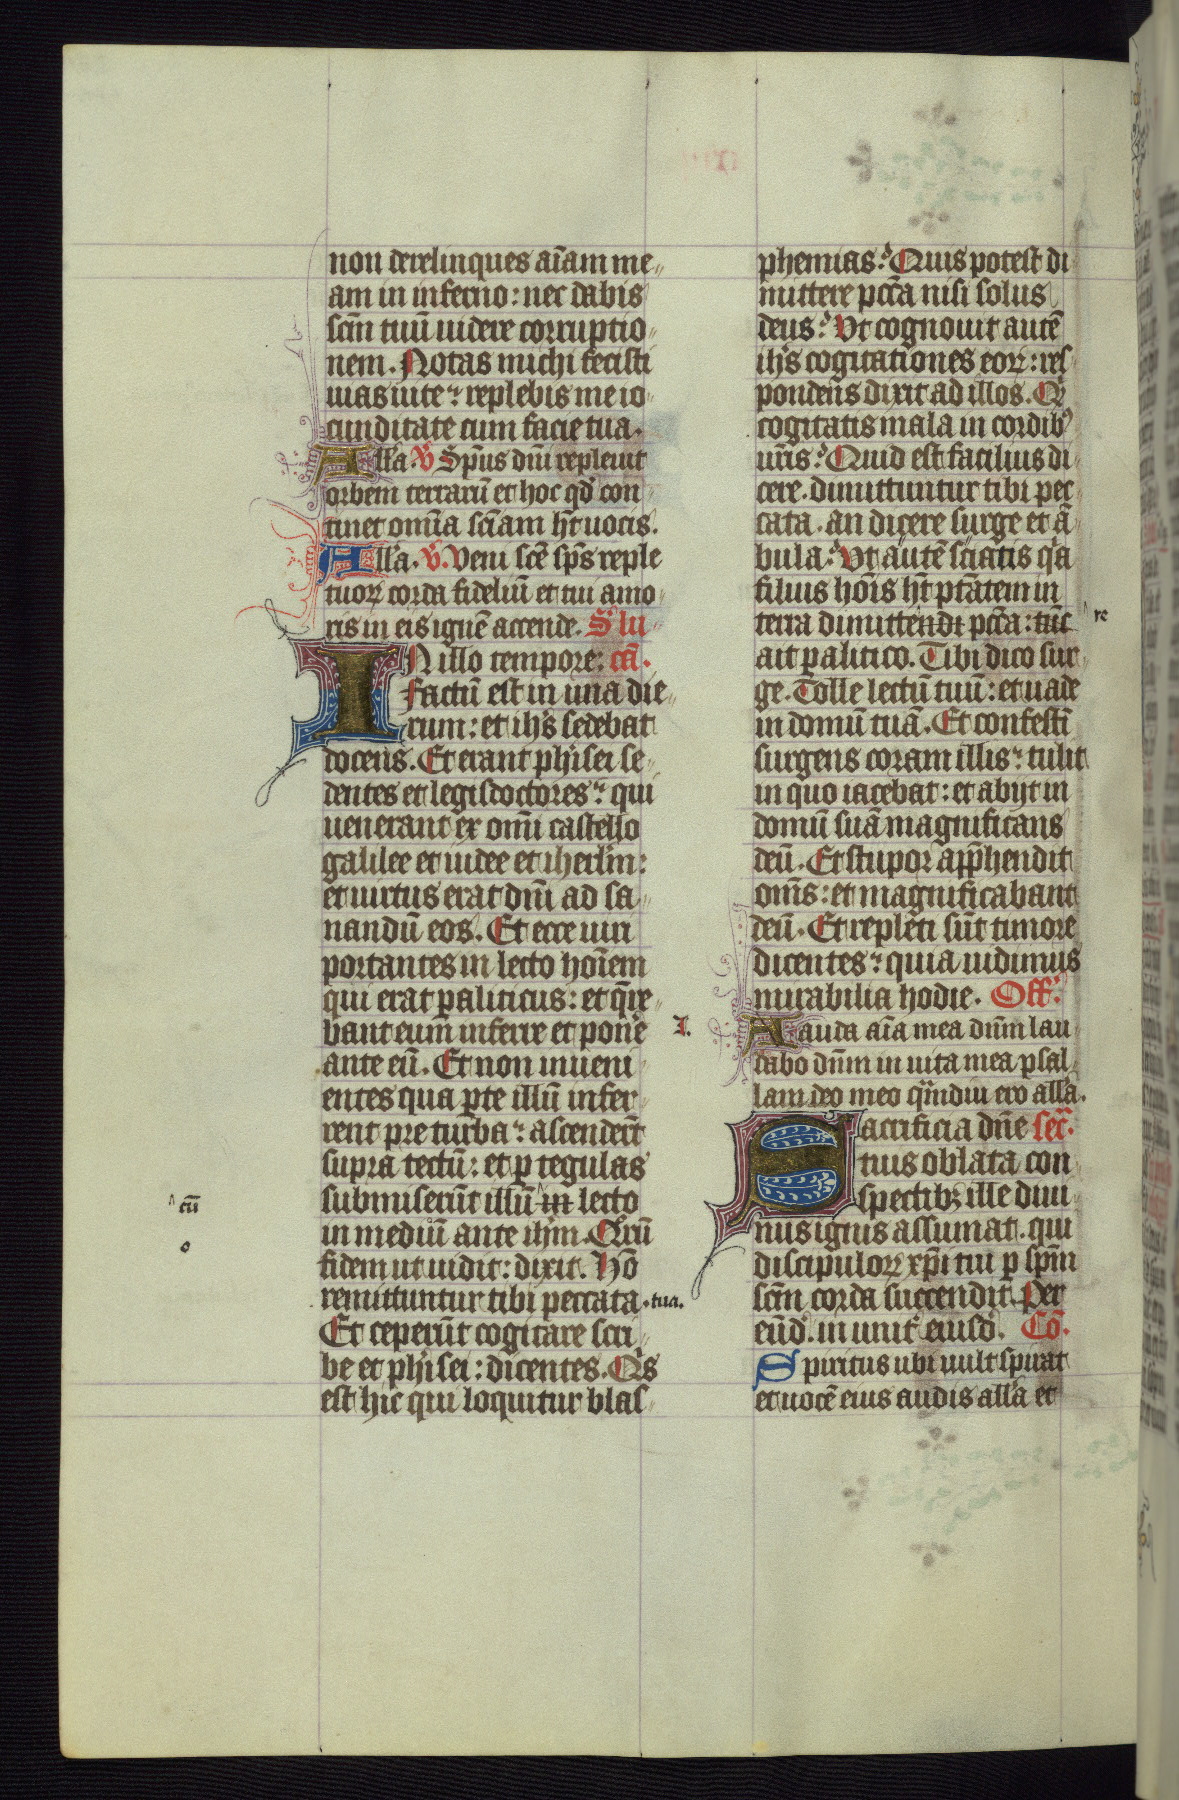 non derelinques aīam me
am in inferno: nec dabis
scm̄ tuū uidere corruptio
nem. Notas michi fecisti
uias uite: replebis me io
cunditate cum facie tua.
Alla. V Sp̄us dn̄i repleuit
orbem terrarū et hoc qd̓ con
tinet omīa sciam h̄t uocis.
Alla. V. Veni scē sp̄s reple
tuoꝝ corda fideliū et tui amo
ris in eis ignē accende. S. lu
IN illo tempore: cā.
Factū est in una die
rum: et ih̄s sedebat
docens. Et erant pħisei se
dentes et legisdoctores: qui
uenerant ex om̄i castello
galilee et iudee et iherl̄m:
et uirtus erat dn̄i ad sa
nandū eos. Et ecce uiri
portantes in lecto hoīem
qui erat ꝑaliticus: et q̄re
bant eum inferre et pone
ante eū. Et non inueni
entes qua ꝑte illū infer
rent pre turba: ascenderūt
supra tectū: et ꝑ tegulas
submiserūt illū in lecto
cū
in mediū ante ih̄m. Qrū
o
fidem ut uidit: dixit. Hō
remittuntur tibi peccata. tua.
Et ceperūt cogitare scri
be et pħisei: dicentes. Qͥs
est hic qui loquitur blas
phemias? Quis potest di
mittere pcc̄a nisi solus
deus? Vt cognouit autē
ih̄s cogitationes eoꝝ: res
pondens dixit ad illos. Q
cogitatis mala in cordibꝰ
ur̄is? Quid est facilius di
cere. dimittuntur tibi pec
cata. an dicere surge et ā
bula? Vt autē sciatis qͣa
filius hōis h̄t ptātem in
terra dimittendi pcc̄a: tūc
re
ait ꝑalitico. Tibi dico sur
ge. Tolle lectū tuū: et uade
in domū tuā. Et confestī
surgens coram illis: tulit
in quo iacebat: et abijt in
domū suā magnificans
deū. Et stupor app̄hendit
om̄s: et magnificabant
deū. Et repleti sūt timore
dicentes: quia uidimus
mirabilia hodie. Off.
L
Aauda aīa mea dn̄m lau
dabo dn̄m in uita mea psal
lam deo meo qͣmdiu ero alla.
Sacrificia dn̄e secͬ.
tuis oblata con
spectibꝫ ille diui
nus ignis assumat. qui
discipuloꝝ xp̄i tui ꝑ sp̄m
scm̄ corda succendit. Per
eūd. in unit̄ eiusd. Cō.
Spiritus ubi uult spirat
et uocē eius audis alla et